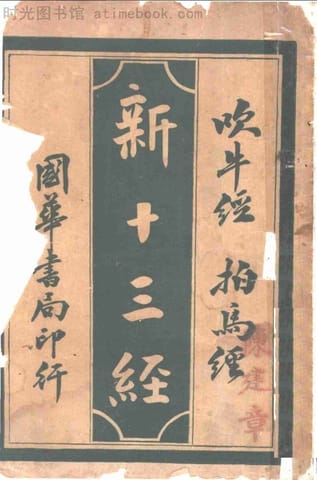 时光图书馆 atimebook.com
吹牛經 拍馬經
新十三經
國華書局印行
陳建章